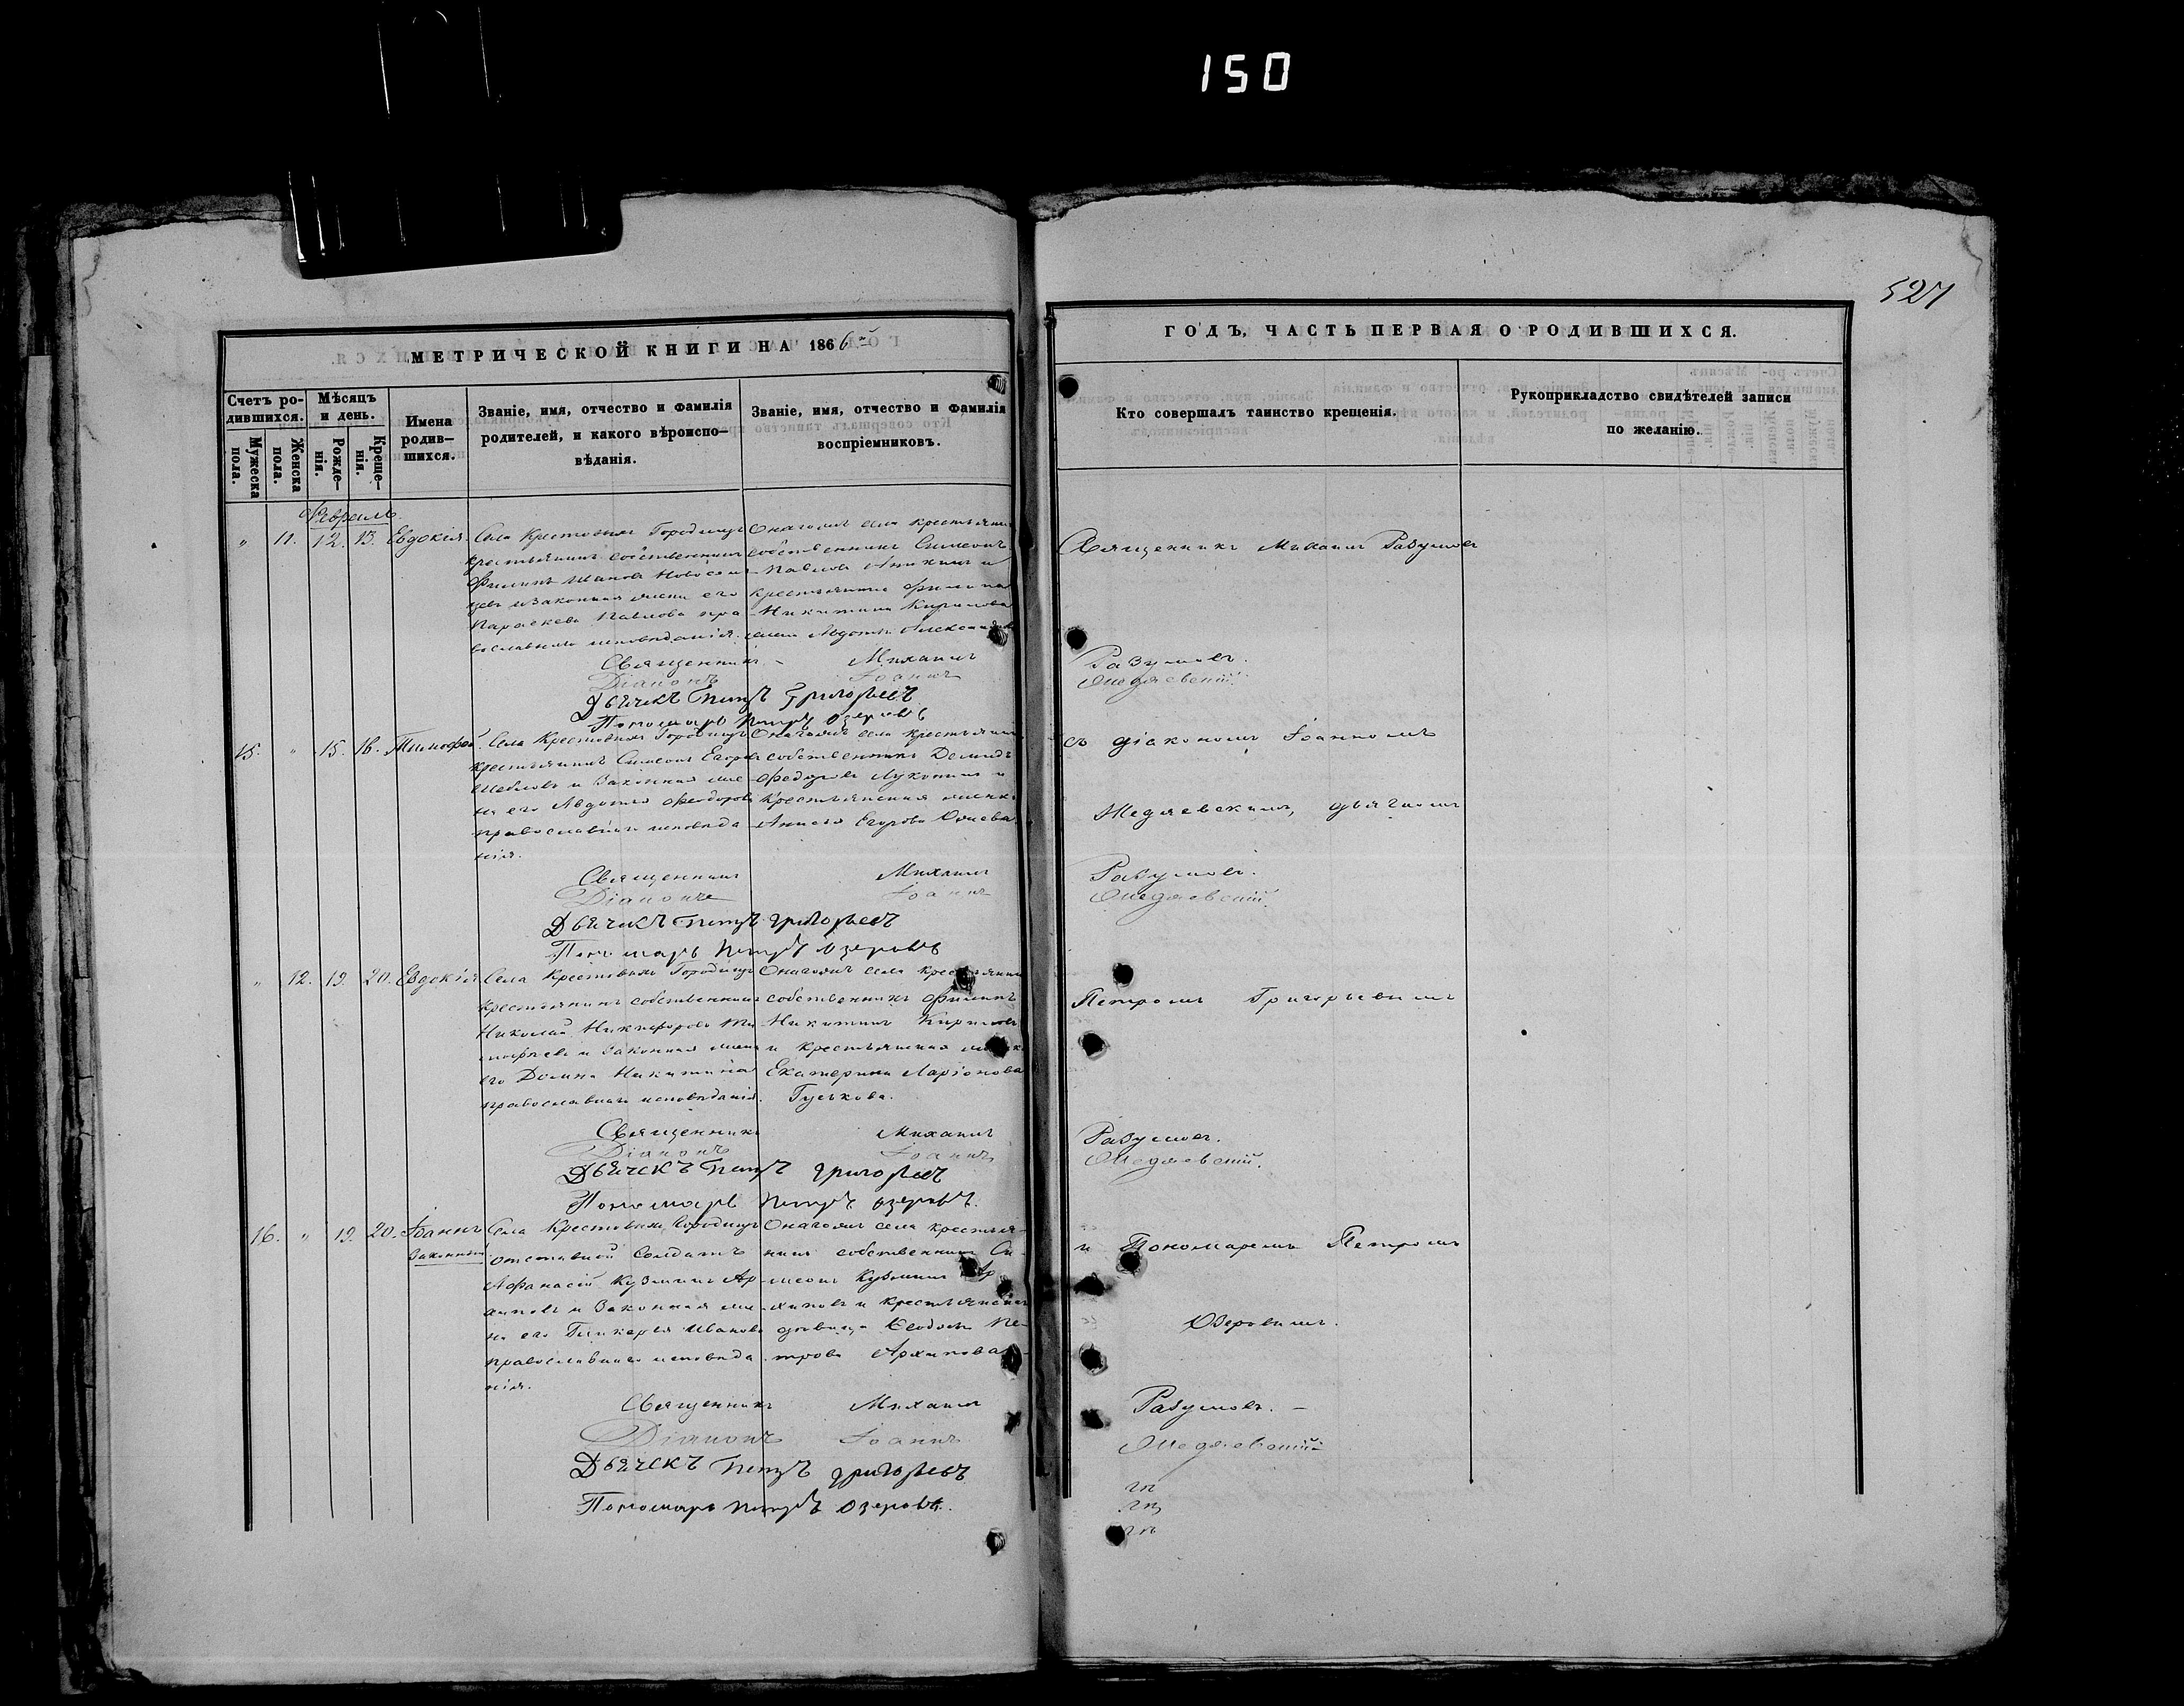 150
527
МЕТРИЧЕСКОЙ КНИГИ НА 1866й
ГОДЪ, ЧАСТЬ ПЕРВАЯ О РОДИВШИХСЯ.
Счетъ ро-
дившихся.
Мужеска
пола.
Женска
пола.
Мѣсяцъ
и день.
Рожде-
нія.
Креще-
нія.
Имена
родив-
шихся.
Званіе, имя, отчество и фамилія
родителей, и какого вѣроиспо-
вѣданія.
Званіе, имя, отчество и фамилія
воспріемниковъ.
Кто совершалъ таинство крещенія.
Рукоприкладство свидѣтелей записи
по желанію.
Февраль.
" 11. 12. 13. Евдокія.
Села Крестовыхъ Городищъ
крестьянинъ собственникъ
Филипъ Ивановъ
и законная жена его
Параскева Павлова пра-
вославнаго исповѣданія.
Онагожъ села крестьянинъ
собственникъ Симеонъ
Павловъ и
крестьянина Филипа
Никитина Кирилова
жена Авдотья
Священникъ Михаилъ Разумовъ
Священникъ Михаилъ Разумовъ.
Діаконъ Іоаннъ
Дьячекъ Петръ Григорьевъ
Пономарь Петръ Озеровъ
15. " 15. 16. Тимофей.
Села Крестовыхъ Городищъ
крестьянинъ Симеонъ Егоровъ
и законная же-
на его Авдотья Феодорова
православнаго исповѣда-
нія.
Онагожъ села крестьянинъ
собственникъ Демидъ
Федоровъ и
крестьянская
Егорова
съ діакономъ Іоанномъ
дьячкомъ
Священникъ Михаилъ Разумовъ.
Діаконъ Іоаннъ
Дьячекъ Петръ Григорьевъ
Пономарь Петръ Озеровъ
" 12. 19. 20. Евдокія
Села Крестовыхъ Городищъ
крестьянинъ собственникъ
Николай Никифоровъ Ти-
мофѣевъ и законная жена
его Домна Никитина
православнаго исповѣданія.
Онагожъ села крестьянинъ
собственникъ Филипъ
Никитинъ Кириловъ
и крестьянская
Екатерина Ларіонова
Гуськова.
Петромъ Григорьевымъ
Священникъ Михаилъ Разумовъ.
Діаконъ Іоаннъ
Дьячекъ Петръ Григорьевъ
Пономарь Петръ Озеровъ.
16. " 19. 20. Іоаннъ
законный.
Села Крестовыхъ Городищъ
отставной солдатъ
Афанасій Кузминъ Ар-
хиповъ и законная же-
на его Гликерья Иванова
православнаго исповѣда-
нія.
Онагожъ села крестья-
нинъ собственникъ Си-
меонъ Кузминъ Ар-
хиповъ и крестьянская
Пе-
трова Архипова
и Пономаремъ Петромъ
Озеровымъ.
Священникъ Михаилъ Разумовъ.
Діаконъ Іоаннъ
Дьячекъ Петръ Григорьевъ
Пономарь Петръ Озеровъ.